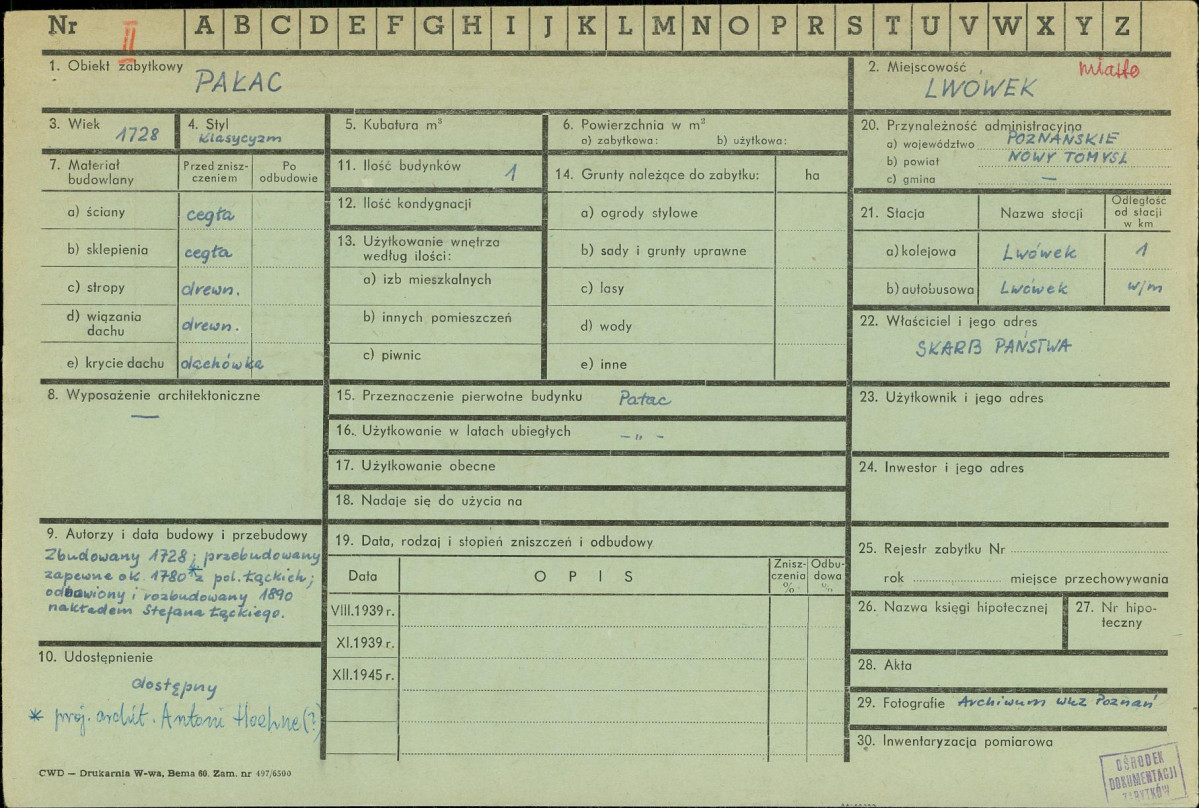 Nr II A B C D E F G H I J K L M N O P R S T U V W X Y Z
1. Obiekt zabytkowy
PAŁAC
2. Miejscowość miasto
LWÓWEK
3. Wiek
1728
4. Styl
Klasycyzm
5. Kubatura m³
6. Powierzchnia w m²
a) zabytkowa: b) użytkowa:
20. Przynależność administracyjna
a) województwo POZNAŃSKIE
b) powiat NOWY TOMYŚL
c) gmina —
7. Materiał budowlany
Przed znisz-
czeniem
Po
odbudowie
a) ściany cegła
b) sklepienia cegła
c) stropy drewn.
d) wiązania
dachu drewn.
e) krycie dachu dachówka
11. Ilość budynków 1
12. Ilość kondygnacji
13. Użytkowanie wnętrza
według ilości:
a) izb mieszkalnych
b) innych pomieszczeń
c) piwnic
14. Grunty należące do zabytku: ha
a) ogrody stylowe
b) sady i grunty uprawne
c) lasy
d) wody
e) inne
21. Stacja Nazwa stacji
Odległość
od stacji
w km
a) kolejowa Lwówek 1
b) autobusowa Lwówek w/m
22. Właściciel i jego adres
SKARB PAŃSTWA
8. Wyposażenie architektoniczne
—
15. Przeznaczenie pierwotne budynku Pałac
16. Użytkowanie w latach ubiegłych – " –
17. Użytkowanie obecne
18. Nadaje się do użycia na
23. Użytkownik i jego adres
24. Inwestor i jego adres
9. Autorzy i data budowy i przebudowy
Zbudowany 1728; przebudowany
zapewne ok. 1780* z pol. Łąckich;
odnawiony i rozbudowany 1890
nakładem Stefana Łąckiego.
10. Udostępnienie
dostępny
* proj. archit. Antoni Hoehne (?)
19. Data, rodzaj i stopień zniszczeń i odbudowy
Data OPIS
Znisz-
czenia
%
Odbu-
dowa
%
VIII.1939 r.
XI.1939 r.
XII.1945 r.
25. Rejestr zabytku Nr
rok miejsce przechowywania
26. Nazwa księgi hipotecznej
27. Nr hipo-
teczny
28. Akta
29. Fotografie Archiwum WKZ Poznań
30. Inwentaryzacja pomiarowa
CWD — Drukarnia W-wa, Bema 60. Zam. nr 497/6500
OŚRODEK
DOKUMENTACJI
ZABYTKÓW